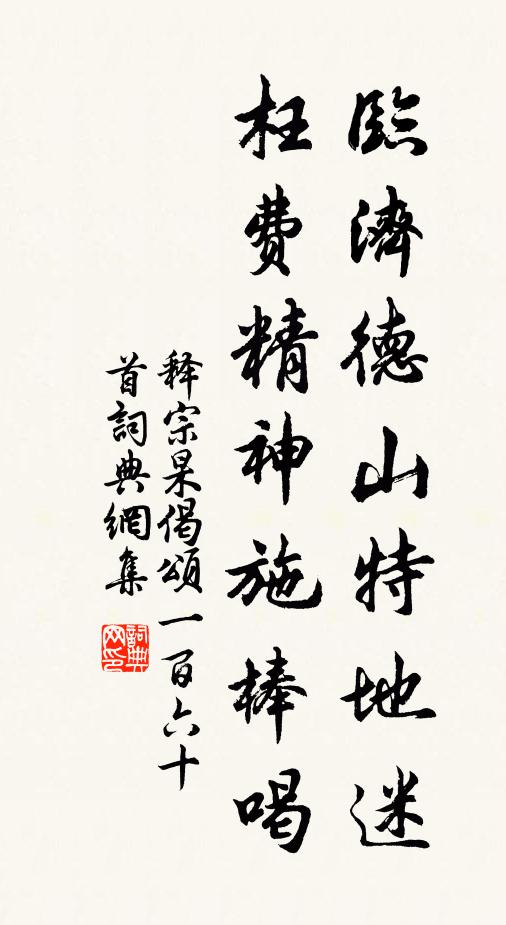 臨濟德山特地迷
枉费精神施棒喝
释宗杲偈頌一百六十
首詞典網集
詞典
网印